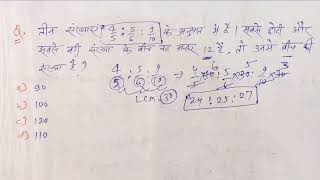 Q. तीन संख्याएं 4/5 : 5/6 : 9/10 के अनुपात में है। सबसे छोटी और
सबसे बड़ी संख्या के बीच का अन्तर 12 है, तो उनमें बीच की
संख्या है?
a) 90
b) 100
c) 120
d) 110
4/5 : 5/6 : 9/10
LCM = 30
4/5 × 30 : 5/6 × 30 : 9/10 × 30
24 : 25 : 27